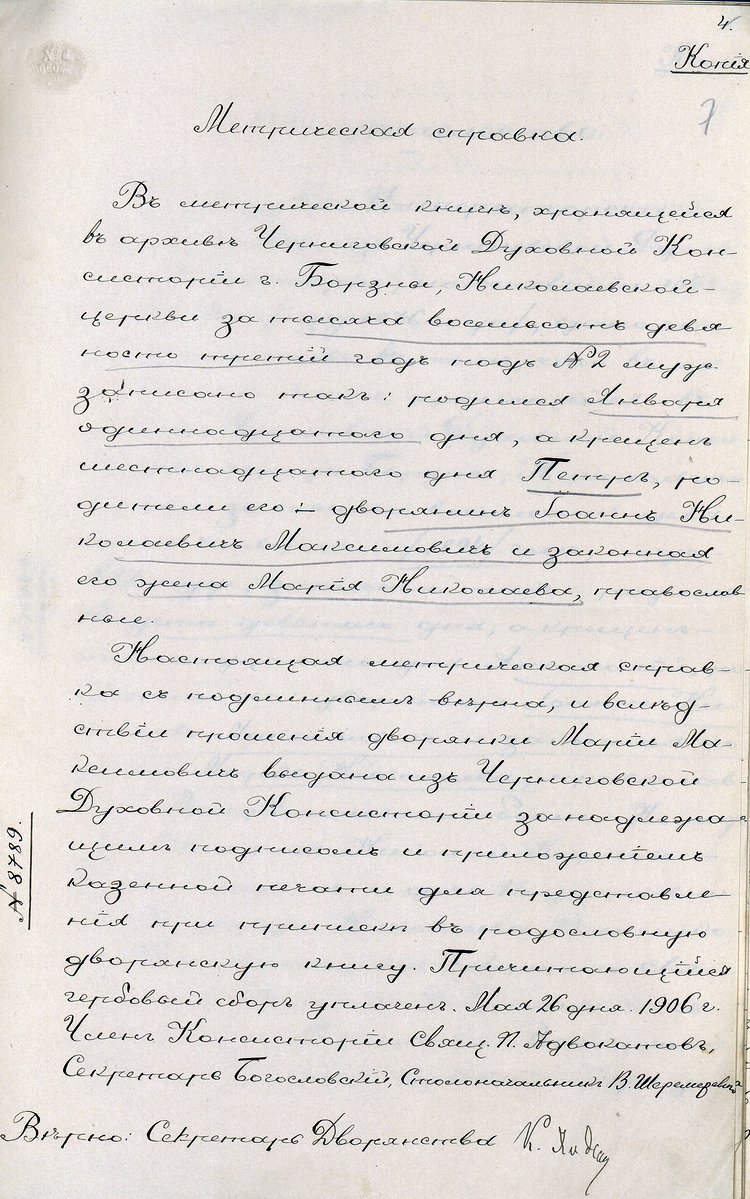 4.
Копія
7
Метрическая справка.
Въ метрической книгѣ, хранящейся
въ архивѣ Черниговской Духовной Кон-
систоріи г. Борзны, Николаевской
церкви за тысяча восемьсотъ девя
носто третій годъ подъ №2 муж.
записано такъ: родился Января
одиннадцатаго дня, а крещенъ
шестнадцатаго дня Петръ, ро-
дители его: – дворянинъ Іоаннъ Ни-
колаевичъ Максимовичъ и законная
его жена Марія Николаева, православ
ные.
Настоящая метрическая справ-
ка съ подлиннымъ вѣрна, и вслѣд-
ствіи прошенія дворянки Маріи Ма-
ксимовичъ выдана изъ Черниговской
Духовной Консисторіи за надлежа
щимъ подписомъ и приложеніемъ
казенной печати для представле
нія при припискѣ въ родословную
дворянскую книгу. Причитающійся
гербовый сборъ уплаченъ. Мая 26 дня 1906 г.
Членъ Консисторіи Свящ. П. Адвокатовъ,
Секретарь Богословскій, Столоначальникъ В. Шеремецкій
Вѣрно: Секретарь Дворянства К.
№ 8789.